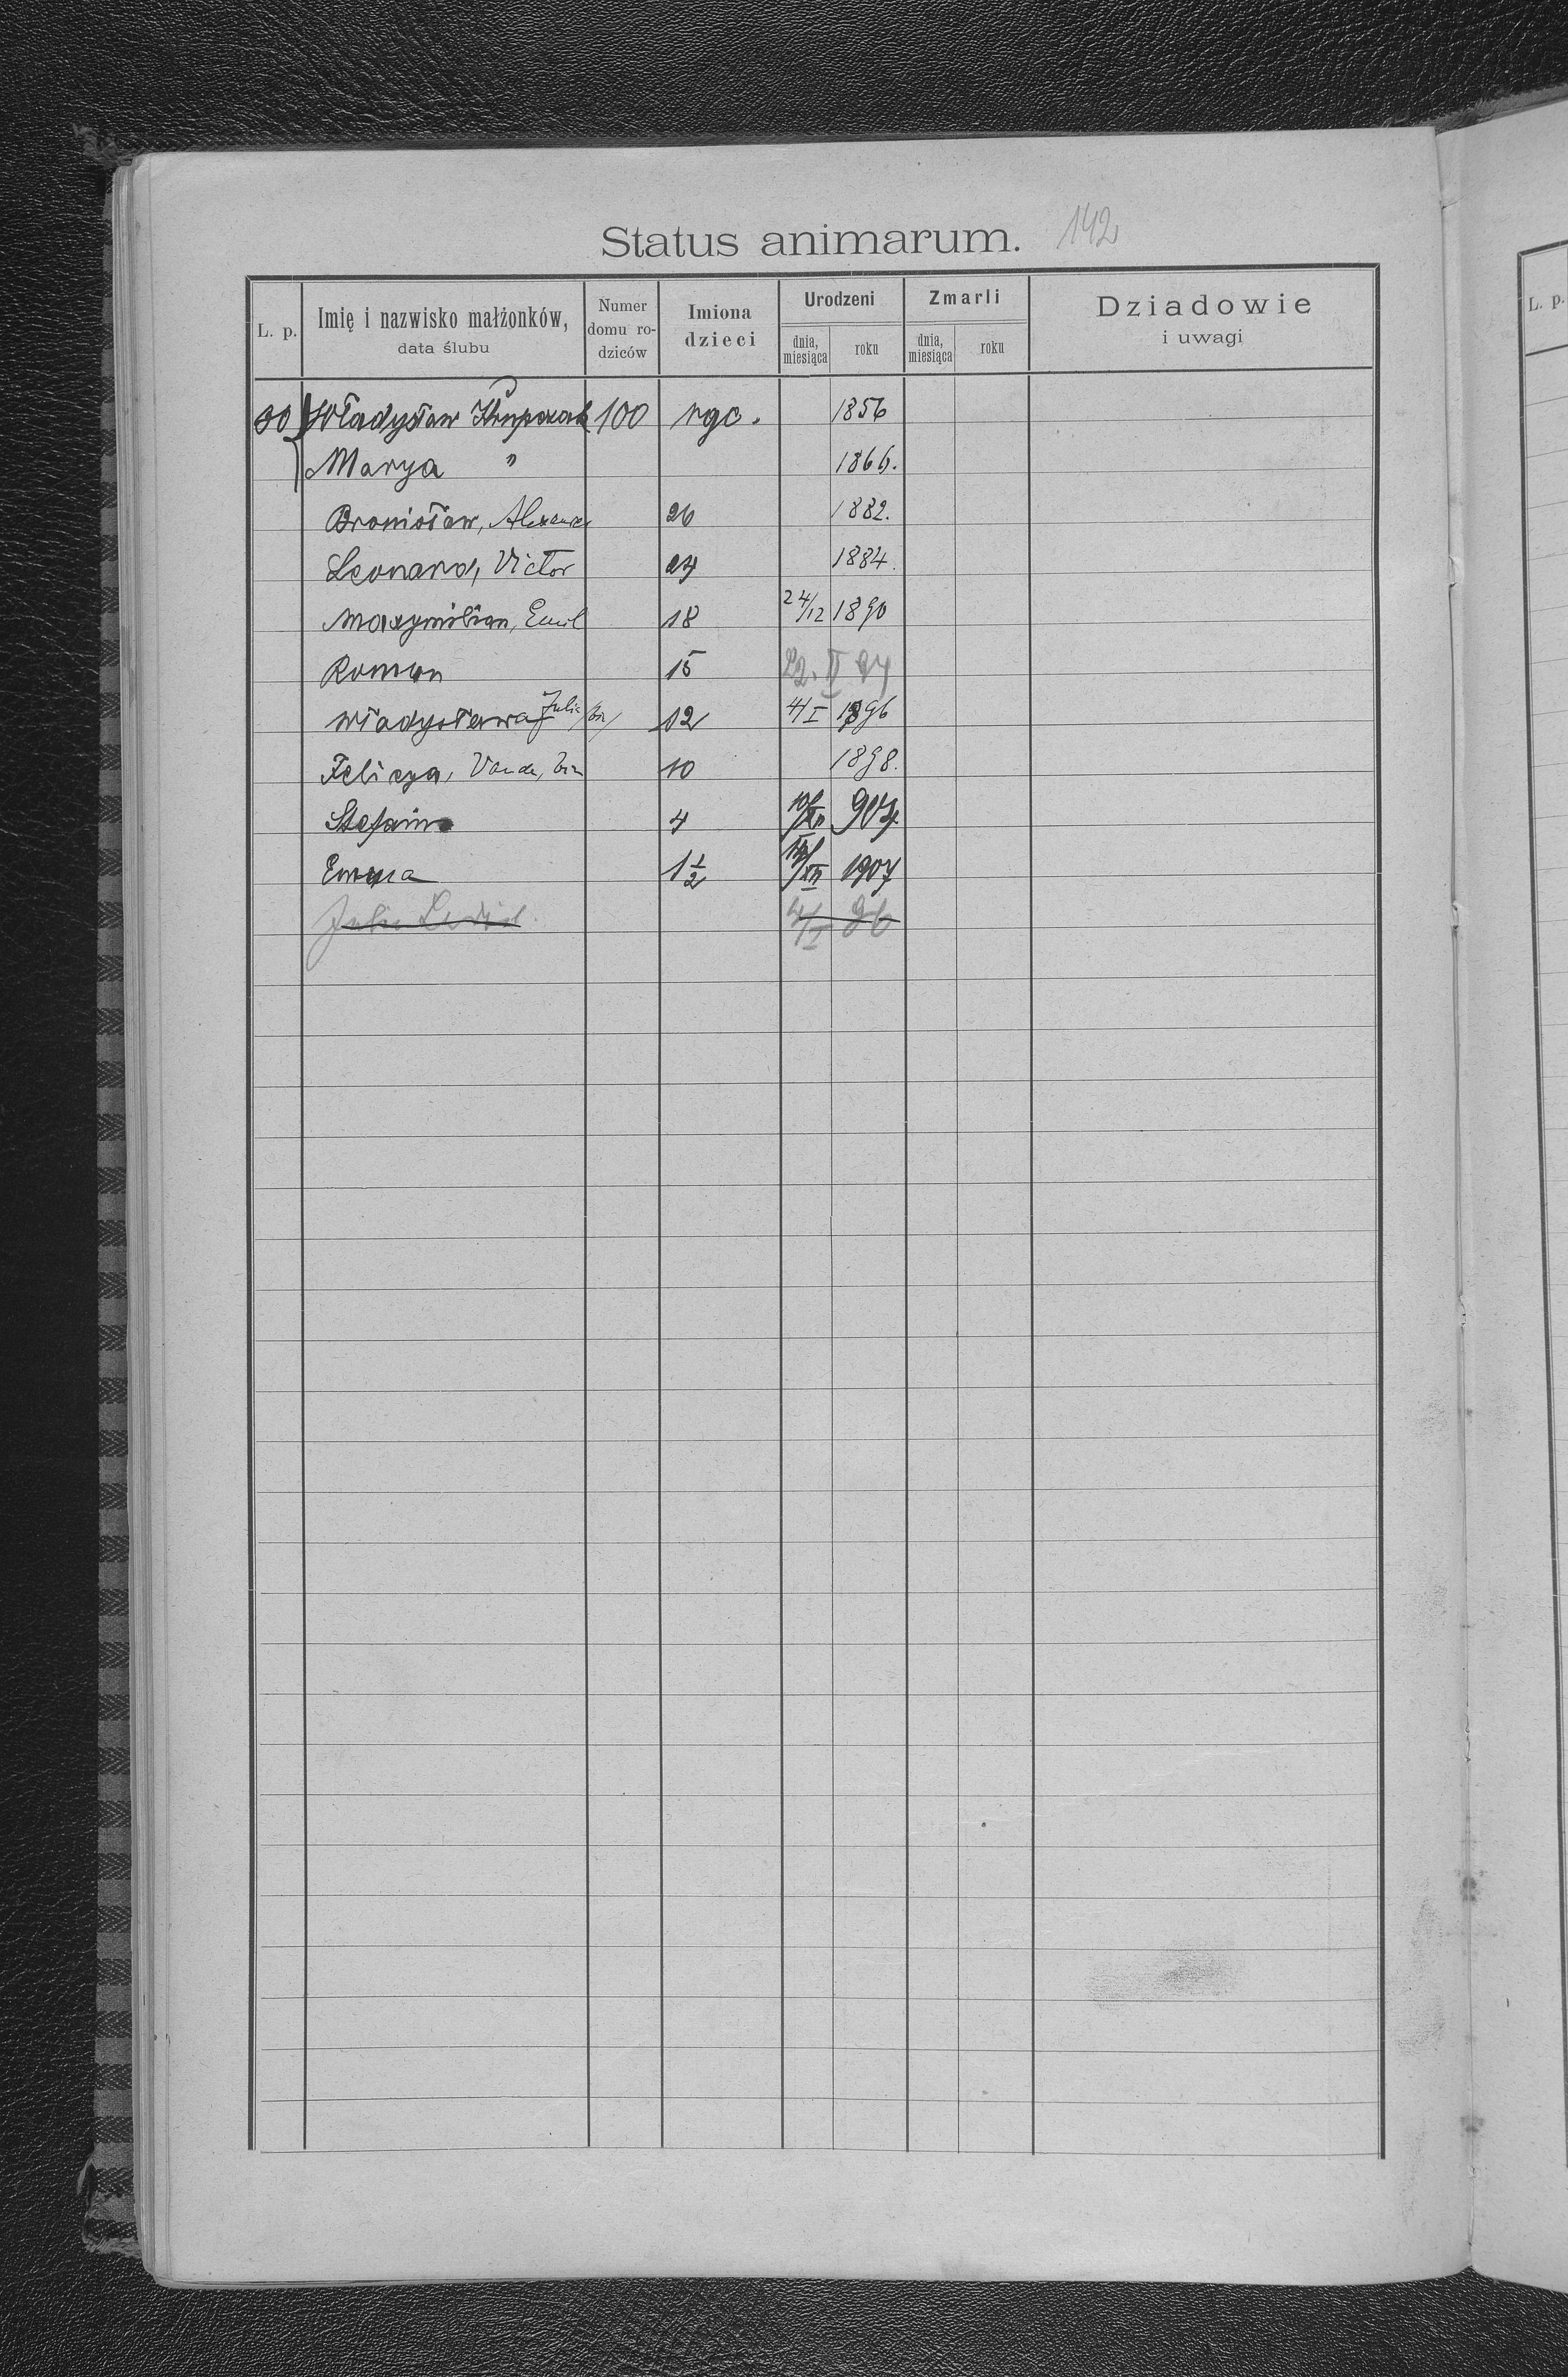 Status animarum. 142
L. p. Imię i nazwisko małżonków, data ślubu Numer domu rodziców Imiona dzieci Urodzeni dnia, miesiąca roku Zmarli dnia, miesiąca roku Dziadowie i uwagi
30 Władysław Krupczak 100 rgc. 1856
Marya " 1866.
Bronisław, Alexander 26 1882.
Leonard, Victor 24 1884.
Maxymilian, Emil 18 24/12 1890
Roman 15 22. II 94
Władysława Julia 12 4/I 1896
Felicya, Vanda, 10 1898.
Stefania 4 904
Emma 1½ 1907
Julia 4/I 96
L. p.